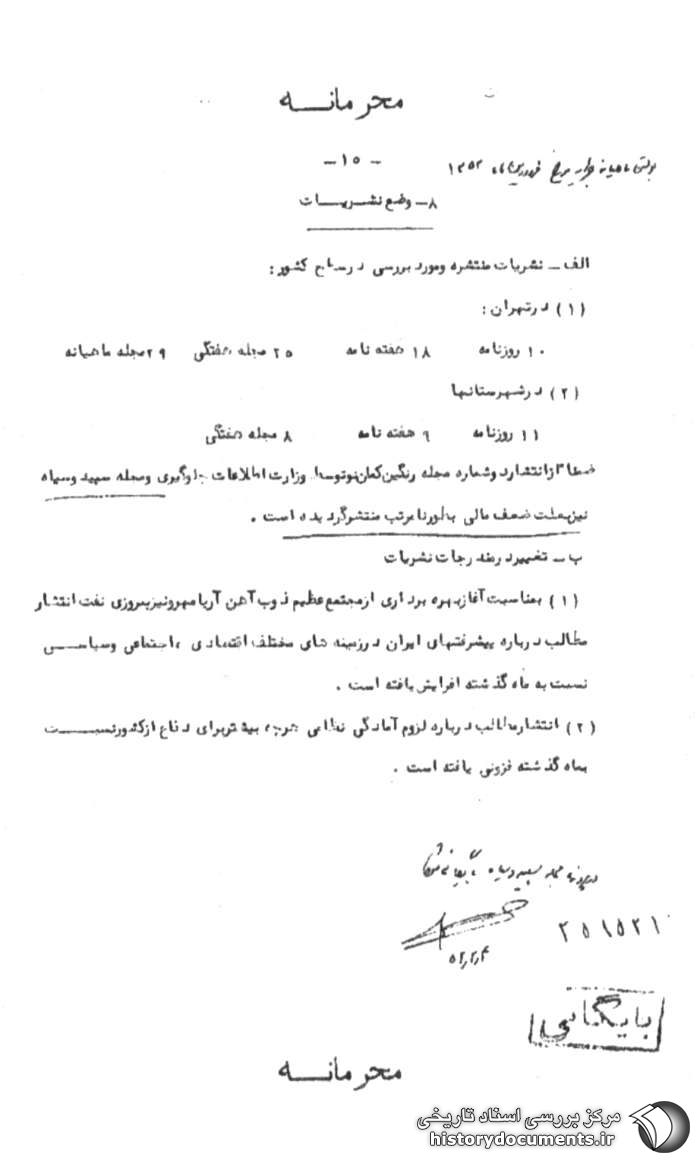 محرمانــه
بولتن ماهیانه فروردین ماه ۱۳۵۲
- ۱۵ -
۸- وضع نشریــات
الف - نشریات منتشره ومورد بررسی در سطح کشور :
(۱) در تهران :
۱۰ روزنامه ۱۸ هفته نامه ۲۵ مجله هفتگی ۲۹ مجله ماهیانه
(۲) در شهرستانها
۱۱ روزنامه ۹ هفته نامه ۸ مجله هفتگی
ضمنا" از انتشار دو شماره مجله رنگین کمان نو توسط وزارت اطلاعات جلوگیری و مجله سپید و سیاه
نیز بعلت ضعف مالی بطور نامرتب منتشر گردیده است .
ب - تغییر در مندرجات نشریات
(۱) بمناسبت آغاز بهره برداری از مجتمع عظیم ذوب آهن آریا مهر و نیز پیروزی نفت انتشار
مطالب درباره پیشرفتهای ایران در زمینه های مختلف اقتصادی ، اجتماعی و سیاســی
نسبت به ماه گذشته افزایش یافته است .
(۲) انتشار مطالب درباره لزوم آمادگی نظامی هرچه بیشتر برای دفاع از کشور نسبــت
بماه گذشته فزونی یافته است .
در پرونده مجله سپید و سیاه بایگانی شود
۲۵۱۵۲۱۰
۵۲٫۲٫۴
بایگانی
محرمانــه
مرکز بررسی اسناد تاریخی
historydocuments.ir